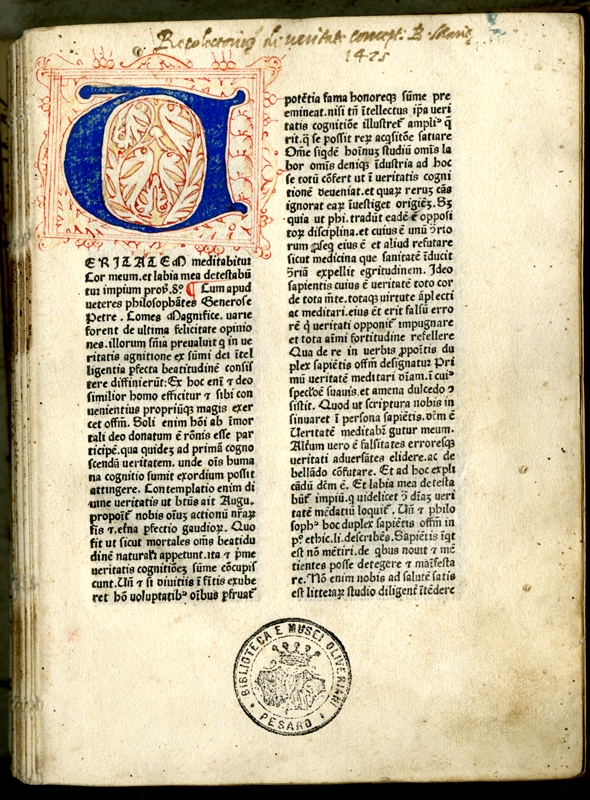 Recolectorium de veritate concept. B. Marie
1475
ERITATEM meditabitur
cor meum. et labia mea detestabū
tur impium prou̕. 8º ¶ Cum apud
ueteres philosophātes Generose
Petre . Comes Magnifice. uarie
forent de ultima felicitate opinio
nes. illorum sn̄ia preualuit q in ue
ritatis agnitione ex sūmi dei ītel
ligentia ꝑfecta beatitudinē consis
tere diffinierūt: Ex hoc enī ⁊ deo
similior homo efficitur ⁊ sibi con
uenientius propriūqꝫ magis exer
cet offm̄. Soli enim hōi ab īmor
tali deo donatum ē rōnis esse par
ticipē. qua quidez ad primā cogno
scendā ueritatem. unde oīs huma
na cognitio sumit exordium possit
attingere. Contemplatio enim di
uine ueritatis ut btūs ait Augu.
propoīt̄ nobis oīuꝫ actionū nr̄aꝝ
fis ⁊. et̄na ꝑfectio gaudioꝝ. Quo
fit ut sicut mortales om̄s beatidu
dinē naturalr̄ appetunt. ita ⁊ ꝑme
ueritatis cognitioēꝫ sūme cōcupis
cunt. Un̄ ⁊ si diuitiis ī f̄itis exube
ret hō uoluptatibꝰ oībus ꝑfruat̄
potētia fama honoreqꝫ sūme pre
emineat. nisi tn̄ ītellectus ip̄a ueri
tatis cognitiōe illustret̄ ampliꝰ q̄
rit. q̄ se possit reꝝ acq̄sitōe satiare
Om̄e siqdē hoīnuꝫ studiū om̄is la
bor om̄is deniqꝫ īdustria ad hoc
se totū cōfert ut ī ueritatis cogni
tionē deueniat. et quaꝝ reruꝫ cās
ignorat eaꝝ īuestiget origiēꝫ. Sꝫ
quia ut phi. tradūt eadē ē opposi
toꝝ disciplina. et cuius ē unū ꝯtrio
rum ꝓseq eius ē et aliud refutare
sicut medicina que sanitatē īducit
ꝯriā expellit egritudinem. Ideo
sapientis cuius ē ueritatē toto cor
de tota mt̄e. totaqꝫ uirtute āplecti
ac meditari. eius ēt̄ erit falsū erro
rē q̄ ueritati opponit̄ impugnare
et tota aīmi fortitudine refellere
Qua de re in uerbis ꝓpoītis du
plex sapiētis offm̄ designatur Pri
mū ueritatē meditari dīam. ī cuiꝰ
specl̄oē suauis. et amena dulcedo ꝯ
sistit. Quod ut scriptura nobis in
sinuaret ī persona sapiētis. dcm̄ ē
Ueritatē meditabr̄ gutur meum.
Altm̄ uero ē falsitates erroresqꝫ
ueritati aduersātes elidere. ac de
bellādo cōfutare. Et ad hoc expli
cādū dcm̄ ē. Et labia mea detesta
būt̄ impiū. q uidelicet ꝯ dīaꝫ ueri
tatē mēdatiū loquit̄. Un̄ ⁊ philo
sophꝰ hoc duplex sapiētis offm̄ in
pº. ethic. li. describēs. Sapiētis īqt
est nō mētiri. de qbus nouit ⁊ mē
tientes posse detegere ⁊ maīfesta
re. Nō enim nobis ad salutē satis
est litteraꝝ studio diligent̄ ītēdere
BIBLIOTECA E MUSEI OLIVERIANI
PESARO